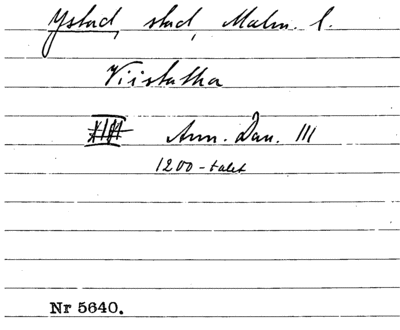 Ystad, stad, Malm. l.
Viistatha
XIII Ann. Dan. III
1200-talet
Nr 5640.